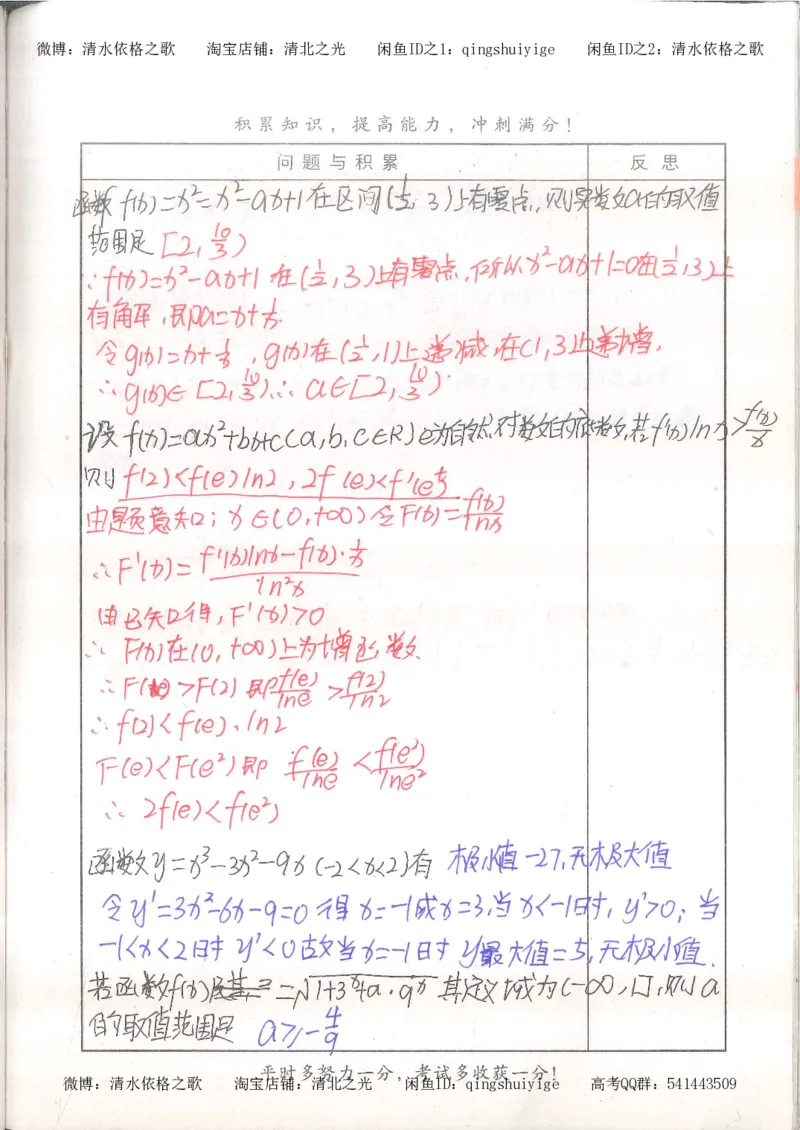 微博：清水依格之歌 淘宝店铺：清北之光 闲鱼ID之1：qingshuiyige 闲鱼ID之2：清水依格之歌
积累知识，提高能力，冲刺满分！
问题与积累 反思
函数f(x)=x²=x²-ax+1在区间(1/2,3)上有零点，则实数a的取值
范围是[2,10/3)
∵f(x)=x²-ax+1在(1/2,3)上有零点，所以x²-ax+1=0在(1/2,3)上
有解，即a=x+1/x.
令g(x)=x+1/x，g(x)在(1/2,1)上递减，在(1,3)上递增，
∴g(x)∈[2,10/3)∴a∈[2,10/3)
设f(x)=ax²+bx+c(a,b,c∈R)e为自然对数的底数，若f'(x)lnx>f(x)/x
则f(2)<f(e)ln2，2f(e)<f'(e²)
由题意知；x∈(0,+∞)令F(x)=f(x)/lnx
∴F'(x)=(f'(x)lnx-f(x)·1/x)/ln²x
由已知得，F'(x)>0
∴F(x)在(0,+∞)上为增函数
∴F(e)>F(2)即f(e)/lne>f(2)/ln2
∴f(2)<f(e)·ln2
F(e)<F(e²)即f(e)/lne<f(e²)/lne²
∴2f(e)<f(e²)
函数y=x³-3x²-9x(-2<x<2)有 极小值-27，无极大值
令y'=3x²-6x-9=0得x=-1或x=3，当x<-1时，y'>0；当
-1<x<2时y'<0故当x=-1时y最大值=5，无极小值.
若函数f(x)=√(1+3ˣ+a·9ˣ)其定义域为(-∞,1]，则a
的取值范围是 a≥-4/9
平时多努力一分，考试多收获一分！
微博：清水依格之歌 淘宝店铺：清北之光 闲鱼ID：qingshuiyige 高考QQ群：541443509